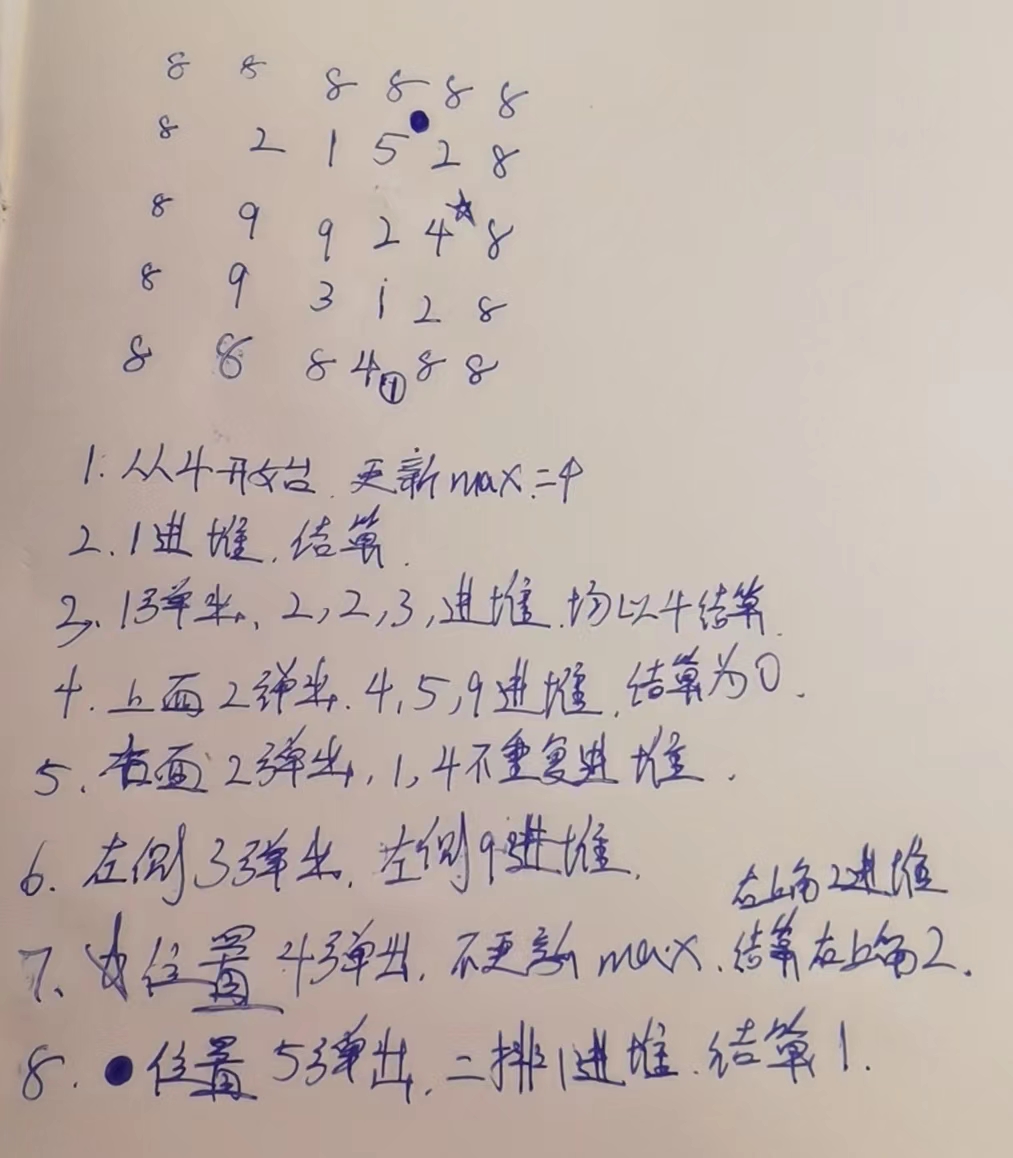 8 8 8 8 8 8
8 2 1 5 2 8
8 9 9 2 4 8
8 9 3 1 2 8
8 8 8 4① 8 8
1. 从4开始. 更新max=4
2. 1进堆, 结算.
3. 1弹出, 2, 2, 3, 进堆, 均以4结算.
4. 上面2弹出. 4, 5, 9进堆, 结算为0.
5. 右面2弹出, 1, 4不重复进堆.
6. 左侧3弹出, 左侧9进堆.
右上角2进堆
7. ☆位置4弹出. 不更新max. 结算右上角2.
8. ●位置5弹出, 二排1进堆. 结算1.